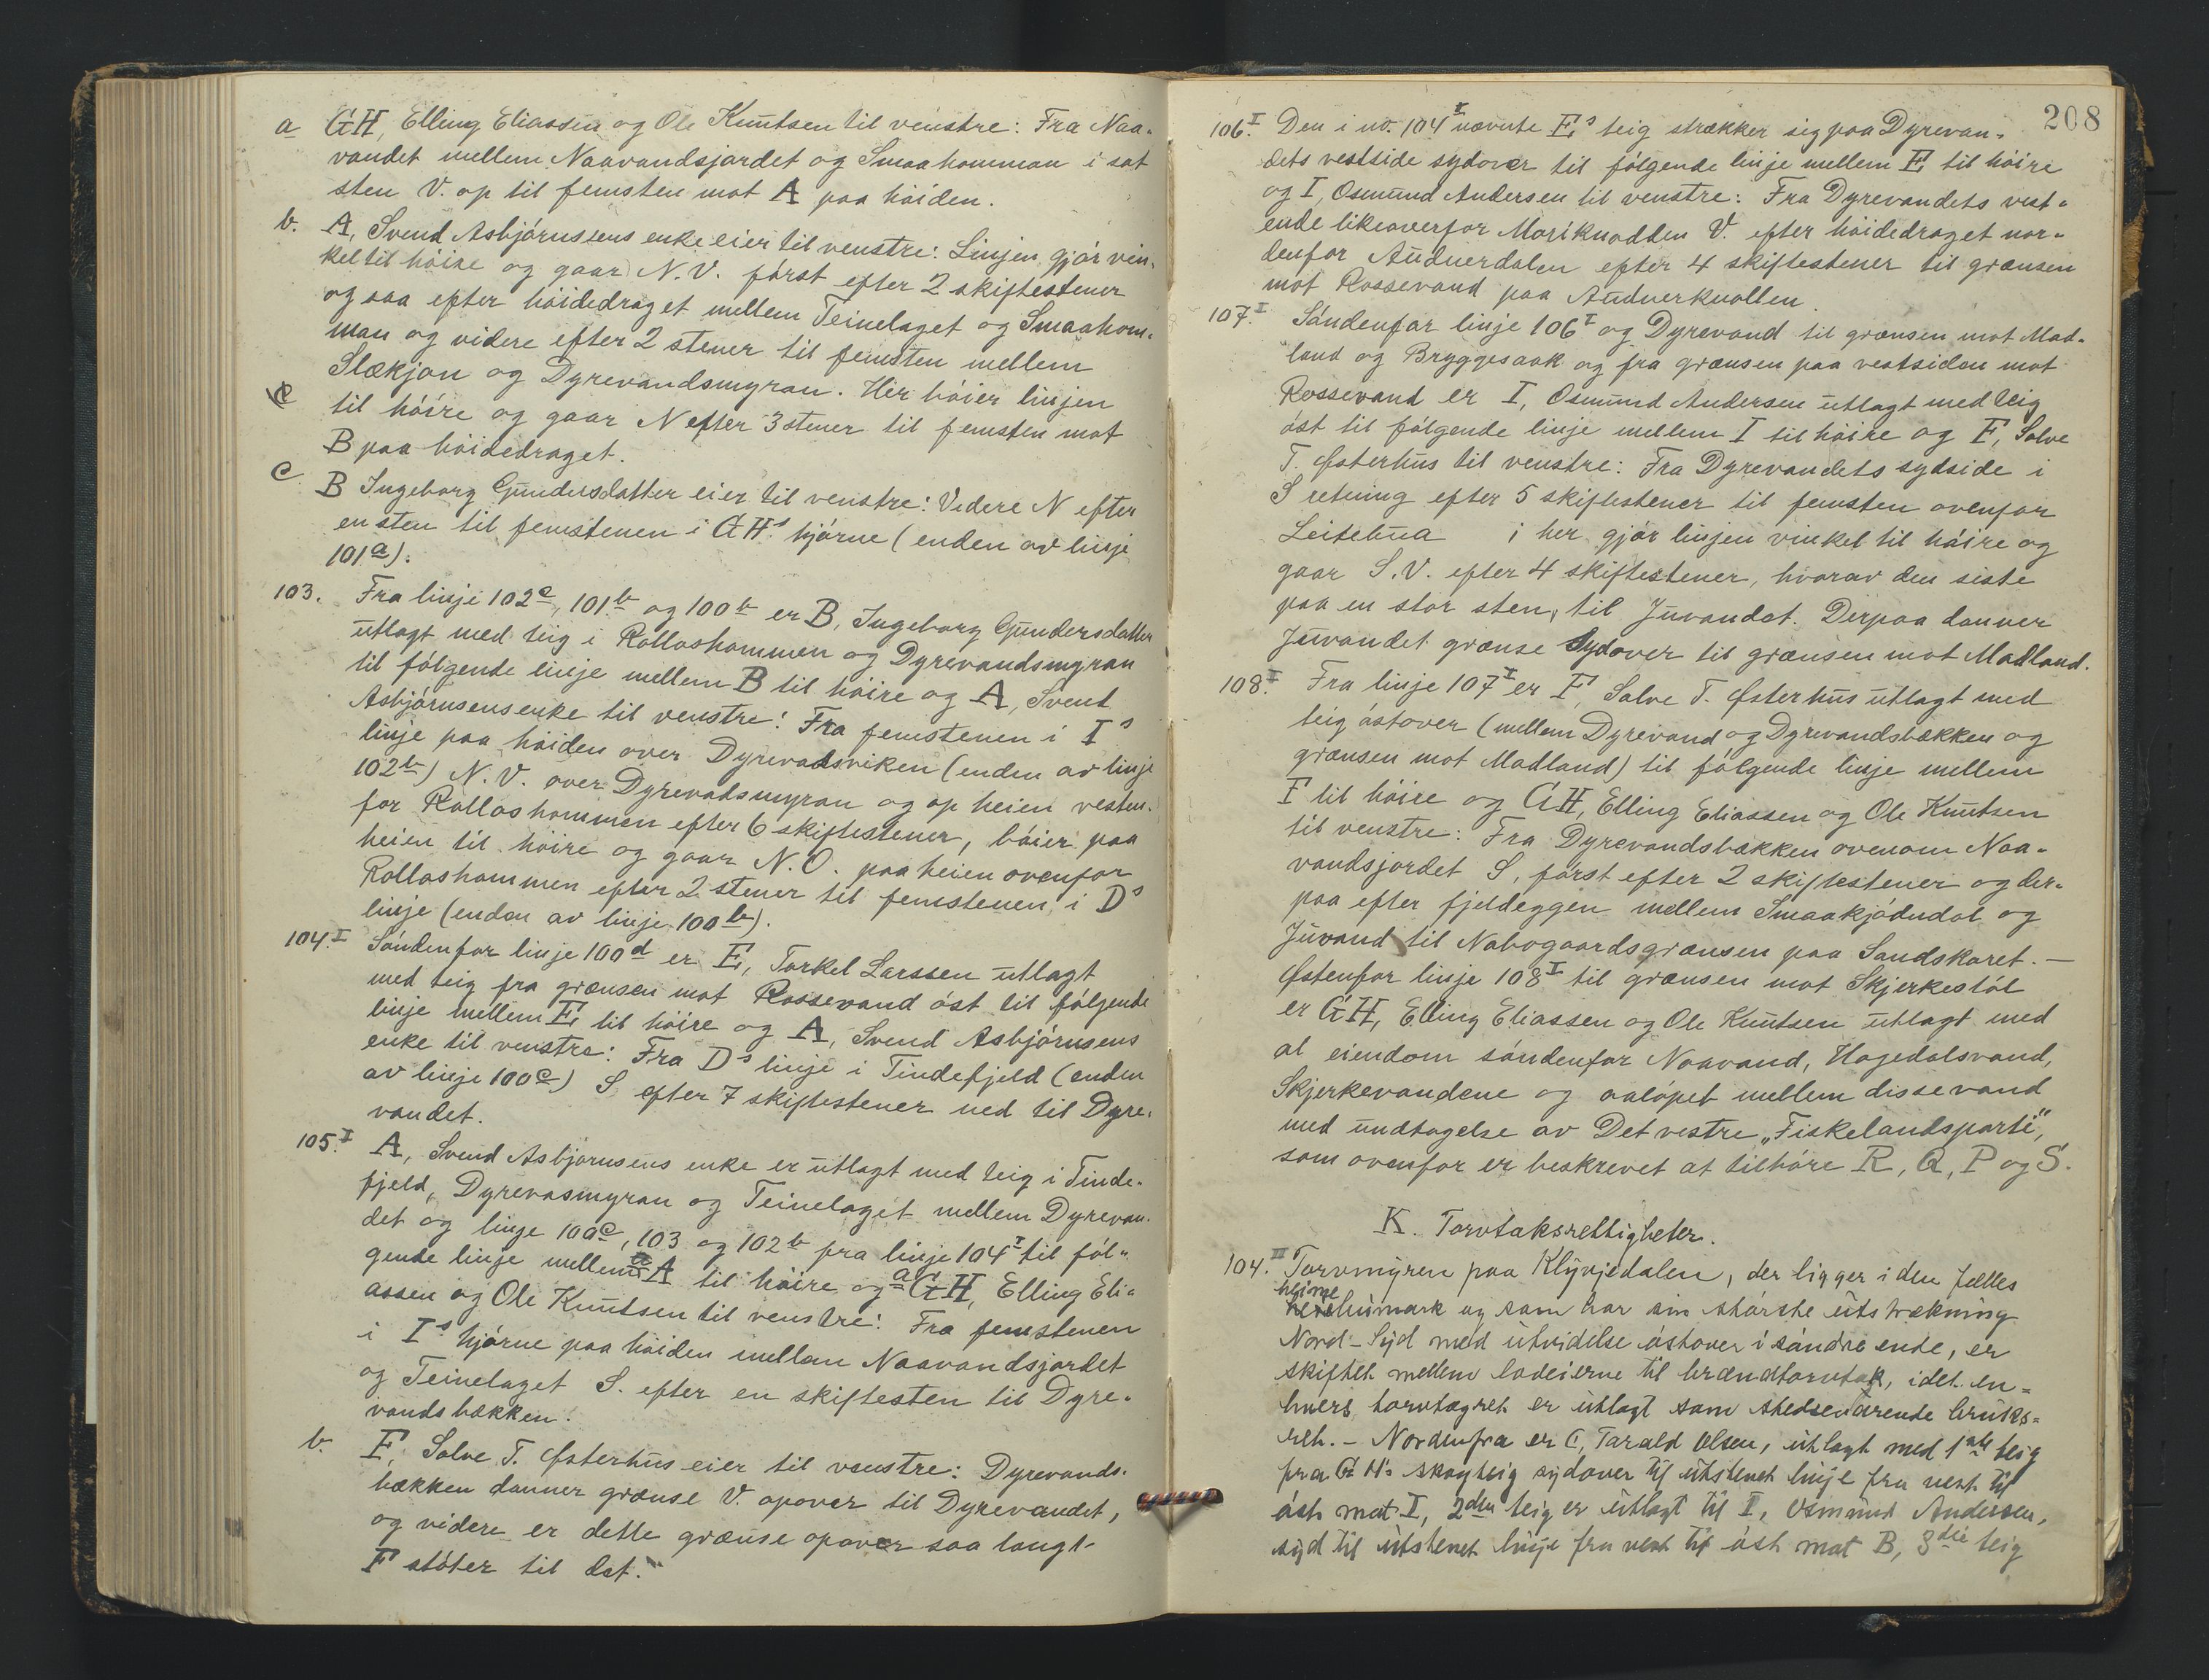 a GH, Elling Eliassen og Ole Knutsen til venstre: Fra Naa-
vandet mellem Naavandsjordet og Smaahomman i sat
sten V. op til femsten mot A paa høiden.
b. A, Svend Asbjørnssens enke eier til venstre: Linjen gjør vin-
kel til høire og gaar N.V. først efter 2 skiftestener
og saa efter høidedraget mellem Teinelaget og Smaahom-
man og videre efter 2 stener til femsten mellem
Slækjan og Dyrevandsmyran. Her bøier linjen
til høire og gaar N efter 3 stener til femsten mot
B paa høidedraget.
c. B Ingeborg Gundersdatter eier til venstre: Videre N efter
en sten til femstenen i GH's hjørne (enden av linje
101a).
103. Fra linje 102c, 101b og 100b er B, Ingeborg Gundersdatter
utlagt med teig i Rollashommen og Dyrevandsmyran
til følgende linje mellem B til høire og A, Svend
Asbjørnsens enke til venstre: Fra femstenen i I's
linje paa høiden over Dyrevadsviken (enden av linje
102b) N.V. over Dyrevadsmyran og op heien vesten-
for Rollashommen efter 6 skiftestener, bøier paa
heien til høire og gaar N.O. paa heien ovenfor
Rollashommen efter 2 stener til femstenen i D's
linje (enden av linje 100b).
104.I Søndenfor linje 100d er E, Torkel Larssen utlagt
med teig fra grænsen mot Rossevand øst til følgende
linje mellem E til høire og A, Svend Asbjørnsens
enke til venstre: Fra D's linje i Tindefjeld (enden
av linje 100c) S efter 7 skiftestener ned til Dyre-
vandet.
105.I A, Svend Asbjørnsens enke er utlagt med teig i Tinde-
fjeld, Dyrevasmyran og Teinelaget mellem Dyrevan-
det og linje 100c, 103 og 102b fra linje 104I til føl-
gende linje mellem A til høire og a GH, Elling Eli-
assen og Ole Knutsen til venstre: Fra femstenen
i I's hjørne paa høiden mellem Naavandsjordet
og Teinelaget S. efter en skiftesten til Dyre-
vandsbækken.
b. F, Salve T. Østerhus eier til venstre: Dyrevands-
bækken danner grænse V. opover til Dyrevandet,
og videre er dette grænse opover saa langt
F støter til det.
208
106.I Den i no. 104I nævnte E's teig strækker sig paa Dyrevan-
dets vestside sydover til følgende linje mellem E til høire
og I, Osmund Andersen til venstre: Fra Dyrevandets vest-
ende likeoverfor Moriknodden V. efter høidedraget nor-
denfor Audnerdalen efter 4 skiftestener til grænsen
mot Rossevand paa Audnerknollen.
107.I Søndenfor linje 106I og Dyrevand til grænsen mot Mad-
land og Bryggesaak og fra grænsen paa vestsiden mot
Rossevand er I, Osmund Andersen utlagt med teig
øst til følgende linje mellem I til høire og F, Salve
T. Østerhus til venstre: Fra Dyrevandets sydside i
S retning efter 5 skiftestener til femsten ovenfor
Leitelina ; her gjør linjen vinkel til høire og
gaar S.V. efter 4 skiftestener, hvorav den siste
paa en stor sten, til Juvandet. Derpaa danner
Juvandet grænse sydover til grænsen mot Madland.
108.I Fra linje 107I er F, Salve T. Østerhus utlagt med
teig østover (mellem Dyrevand og Dyrevandsbækken og
grænsen mot Madland) til følgende linje mellem
F til høire og GH, Elling Eliassen og Ole Knutsen
til venstre: Fra Dyrevandsbækken ovenom Naa-
vandsjordet S, først efter 2 skiftestener og der-
paa efter fjeldeggen mellem Smaakjødndal og
Juvand til Nabogaardsgrænsen paa Sandskaret. —
Østenfor linje 108I til grænsen mot Skjerkestøl
er GH, Elling Eliassen og Ole Knutsen utlagt med
al eiendom søndenfor Naavand, Hagedalsvand,
Skjerkevandene og aaløpet mellem disse vand
med undtagelse av Det vestre „Fiskelandsparti",
som ovenfor er beskrevet at tilhøre R, Q, P og S.
K. Torvtaksrettigheter.
104.III Torvmyren paa Klyvjedalen, der ligger i den fælles
heime
humark og som har sin største utstrækning
Nord-Syd med utvidelse østover i søndre ende, er
skiftet mellem lodeierne til brændtorvtak, idet en-
hvers torvtægret er utlagt som stedsevarende bruks-
ret. - Nordenfra er C, Tarald Olsen, utlagt med 1ste teig
fra GH's skogteig sydover til utstenet linje fra vest til
øst mot I, 2den teig er utlagt til I, Osmund Andersen,
syd til utstenet linje fra vest til øst mot B, 3die teig